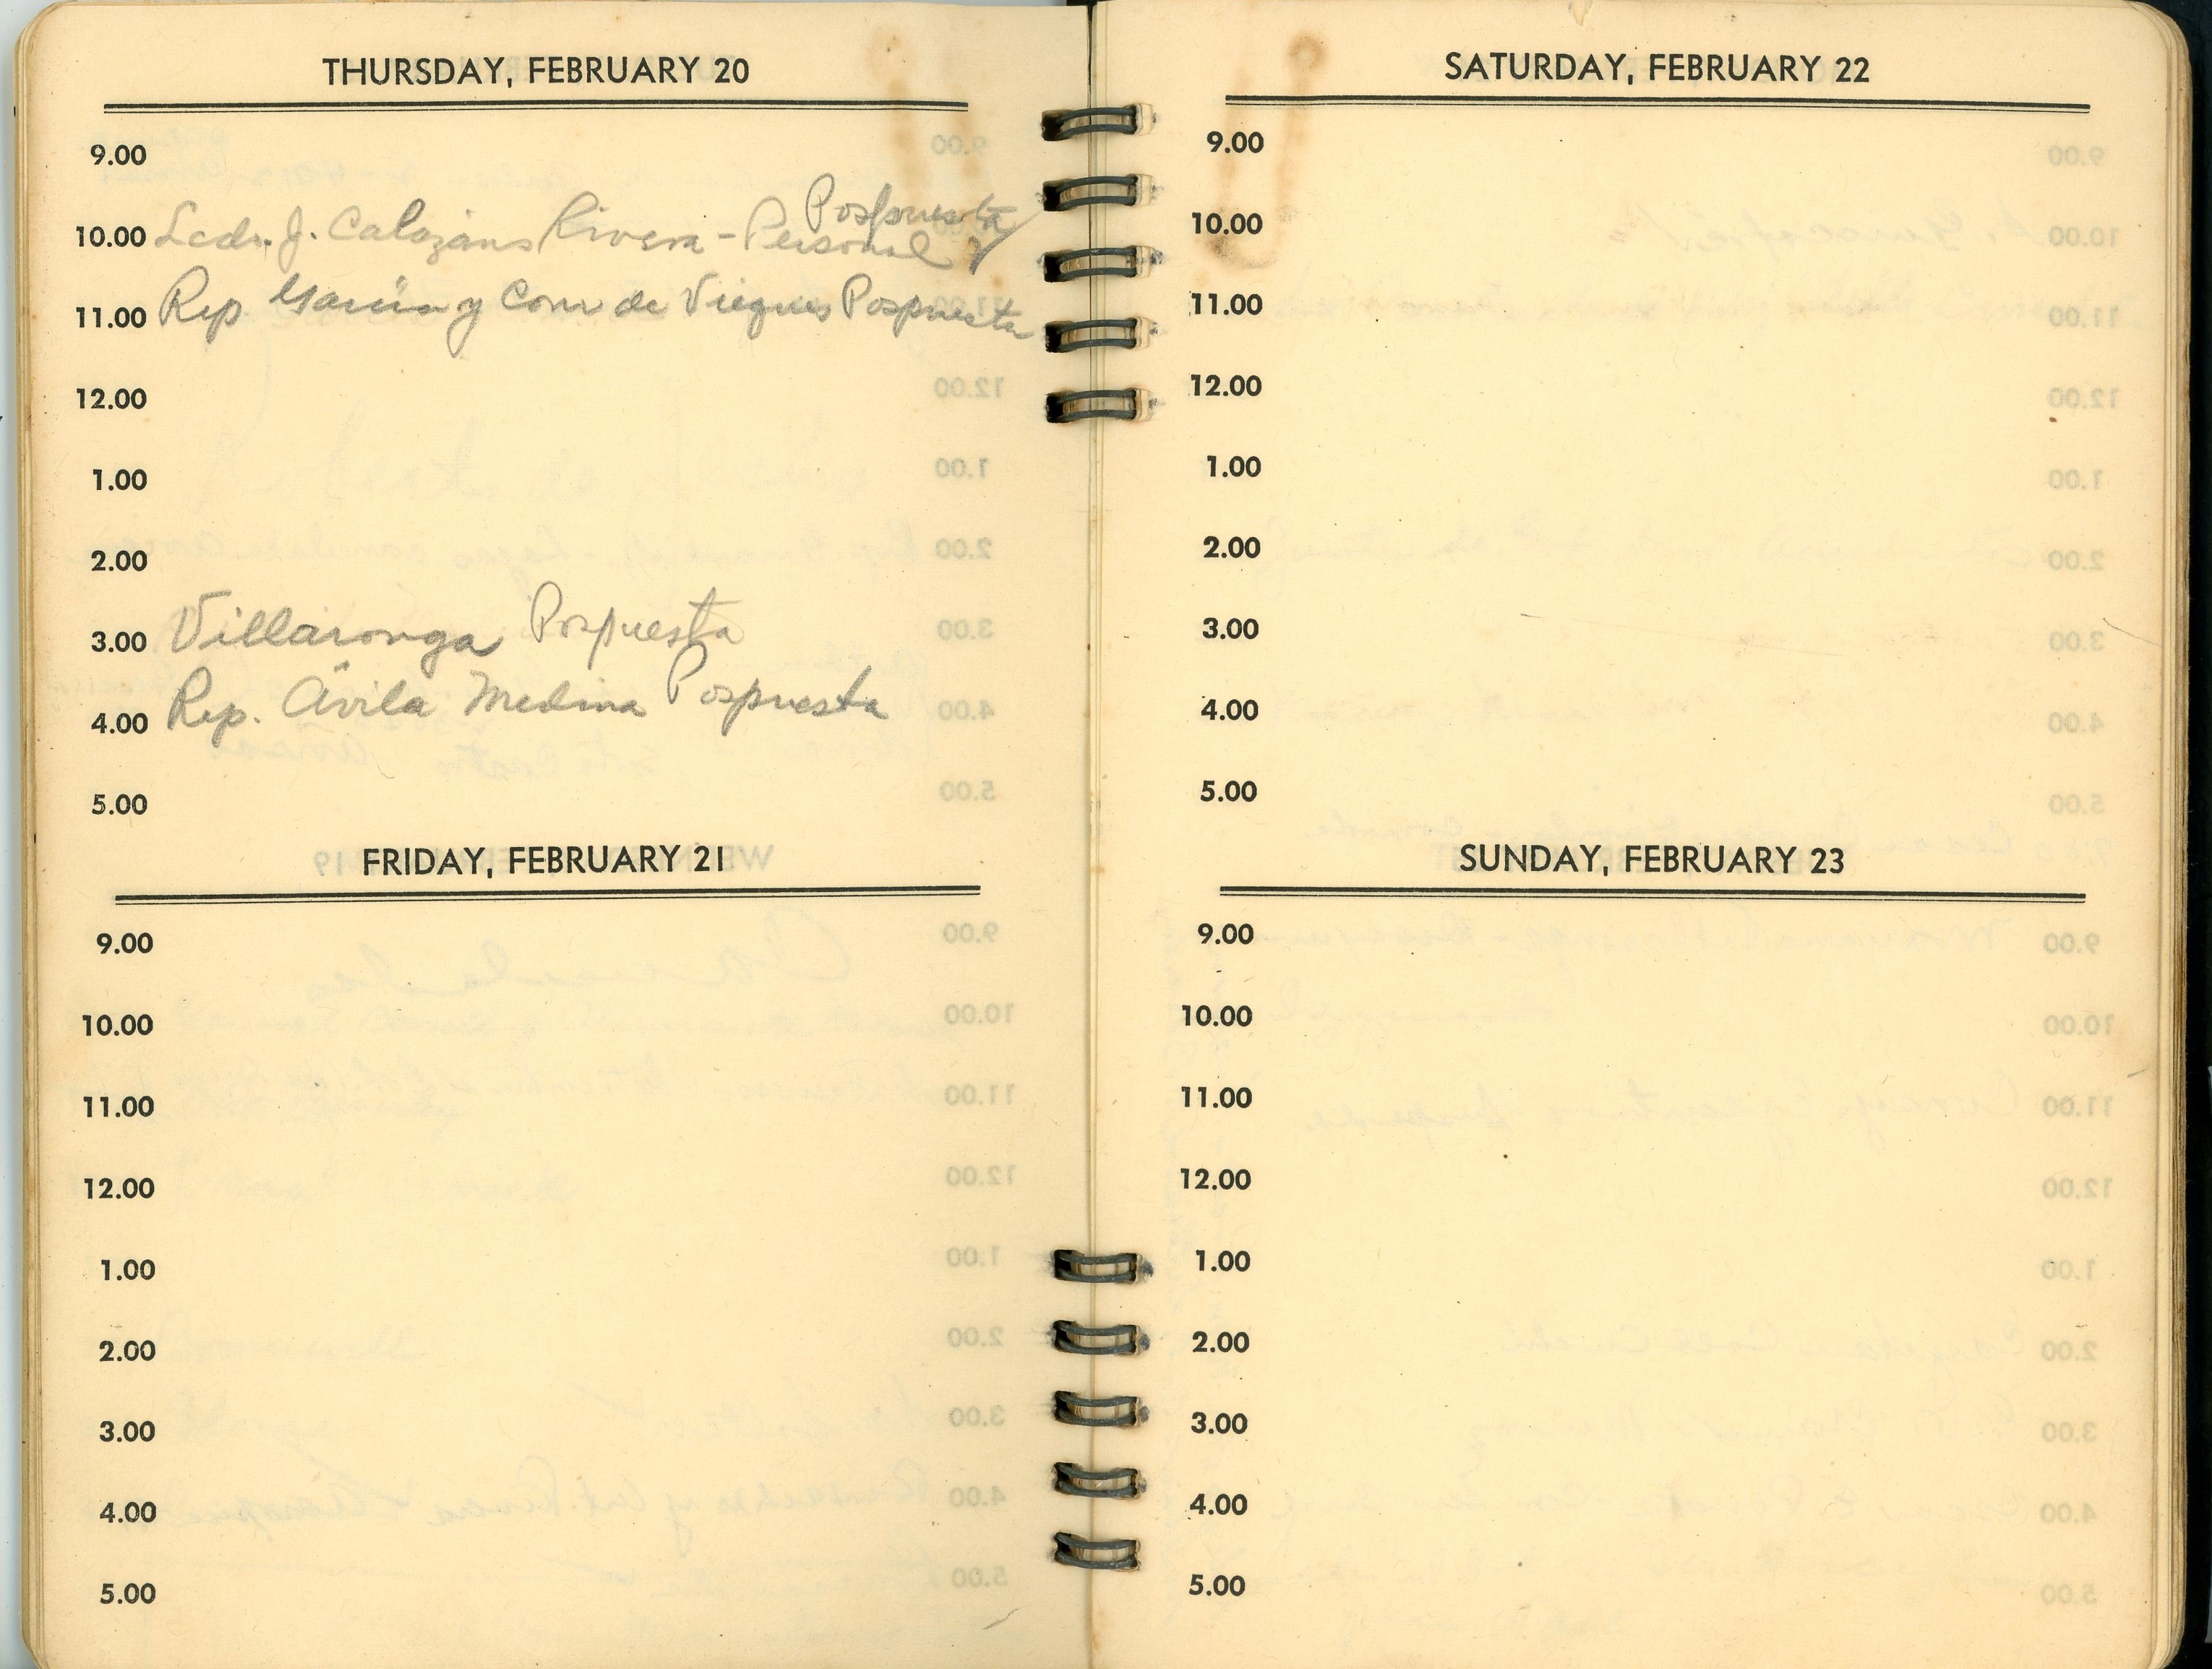 THURSDAY, FEBRUARY 20
9.00
Pospuesta
10.00 Lcdo. J. Calazans Rivera - Personal
11.00 Rep García y Com de Vieques Pospuesta
12.00
1.00
2.00
3.00 Villaronga Pospuesta
4.00 Rep. Ávila Medina Pospuesta
5.00
FRIDAY, FEBRUARY 21
9.00
10.00
11.00
12.00
1.00
2.00
3.00
4.00
5.00
SATURDAY, FEBRUARY 22
9.00
10.00
11.00
12.00
1.00
2.00
3.00
4.00
5.00
SUNDAY, FEBRUARY 23
9.00
10.00
11.00
12.00
1.00
2.00
3.00
4.00
5.00